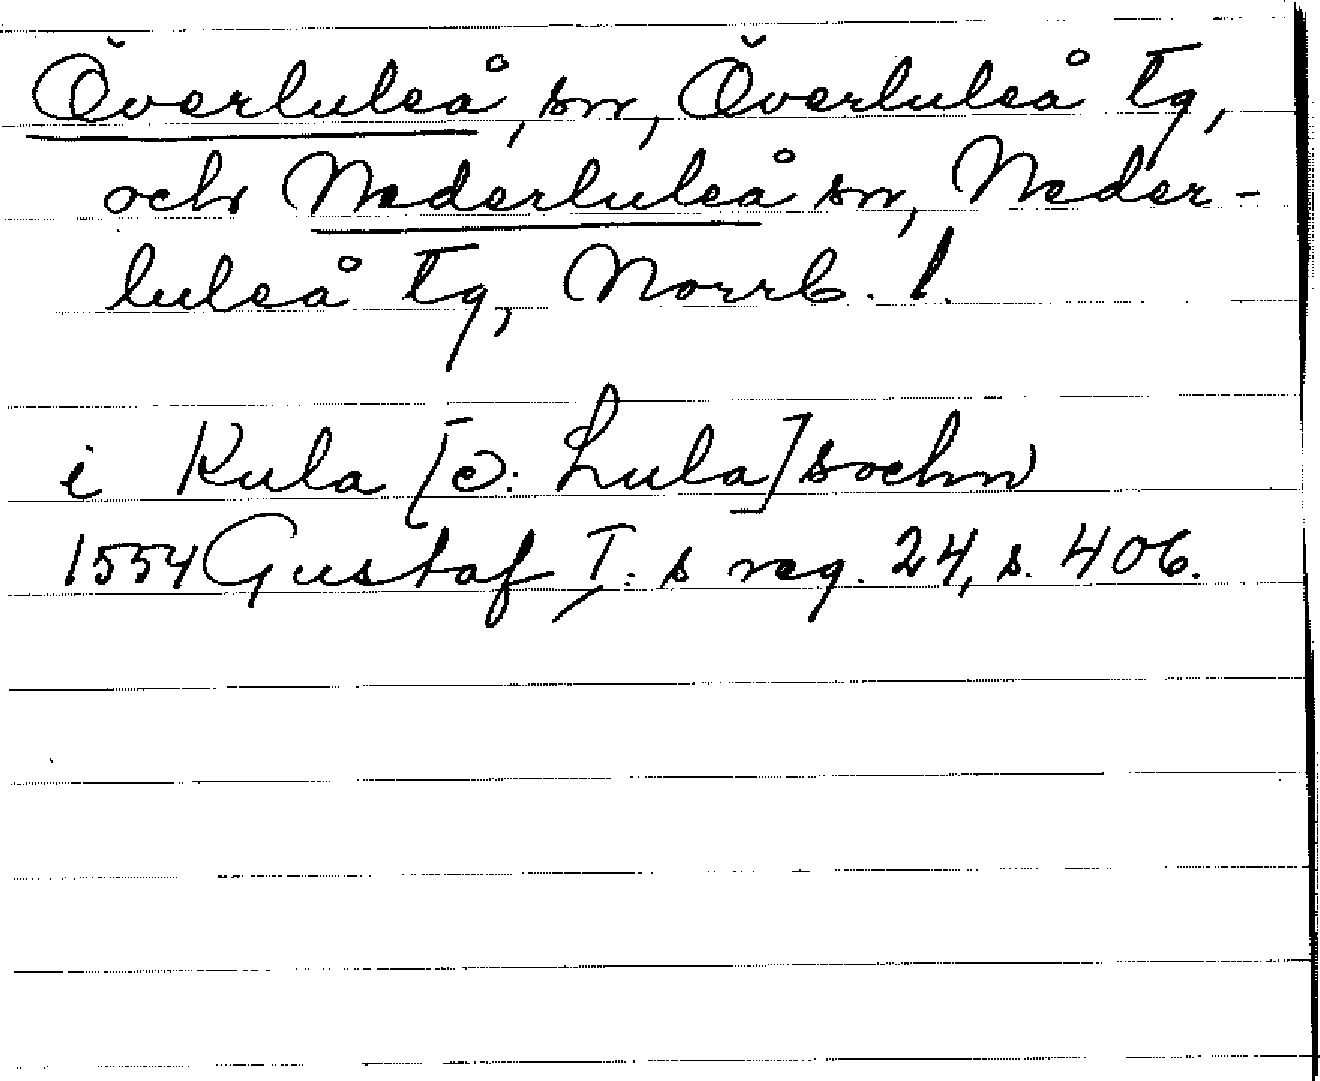 Överluleå, sn, Överluleå tg,
och Nederluleå sn, Neder-
luleå tg, Norrb. l.
i Kula [ɔ: Lula] sochn
1554 Gustaf I:s reg. 24, s. 406.